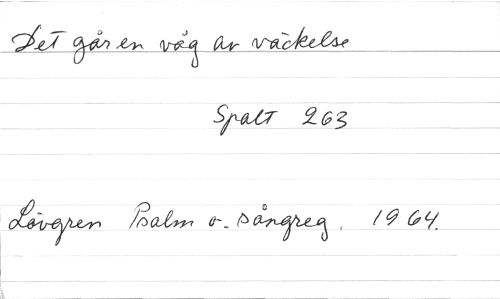 Det går en våg av väckelse
Spalt 263
Lövgren Psalm o. sångreg. 1964.